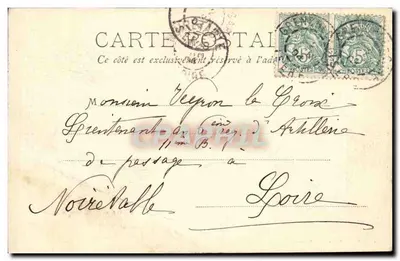 CARTE POSTALE
Ce côté est exclusivement réservé à l'adresse
Monsieur Veyron la Croix
Lieutenant au d'Artillerie
11me B.
de passage à
Noirétable Loire